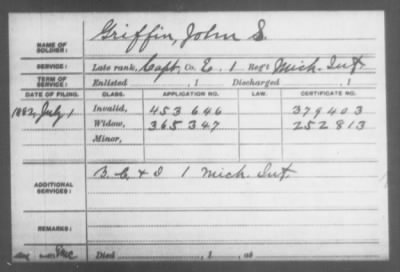 NAME OF SOLDIER: Griffin, John S.
SERVICE: Late rank, Capt, Co. E. 1 Reg't Mich. Inf.
TERM OF SERVICE: Enlisted , 1 Discharged , 1
DATE OF FILING. CLASS. APPLICATION NO. LAW. CERTIFICATE NO.
1882, July 1 Invalid, 453 646 379403
Widow, 365 347 252 813
Minor,
ADDITIONAL SERVICES: B. C. & D 1 Mich. Inf.
REMARKS:
Died , 1 , at